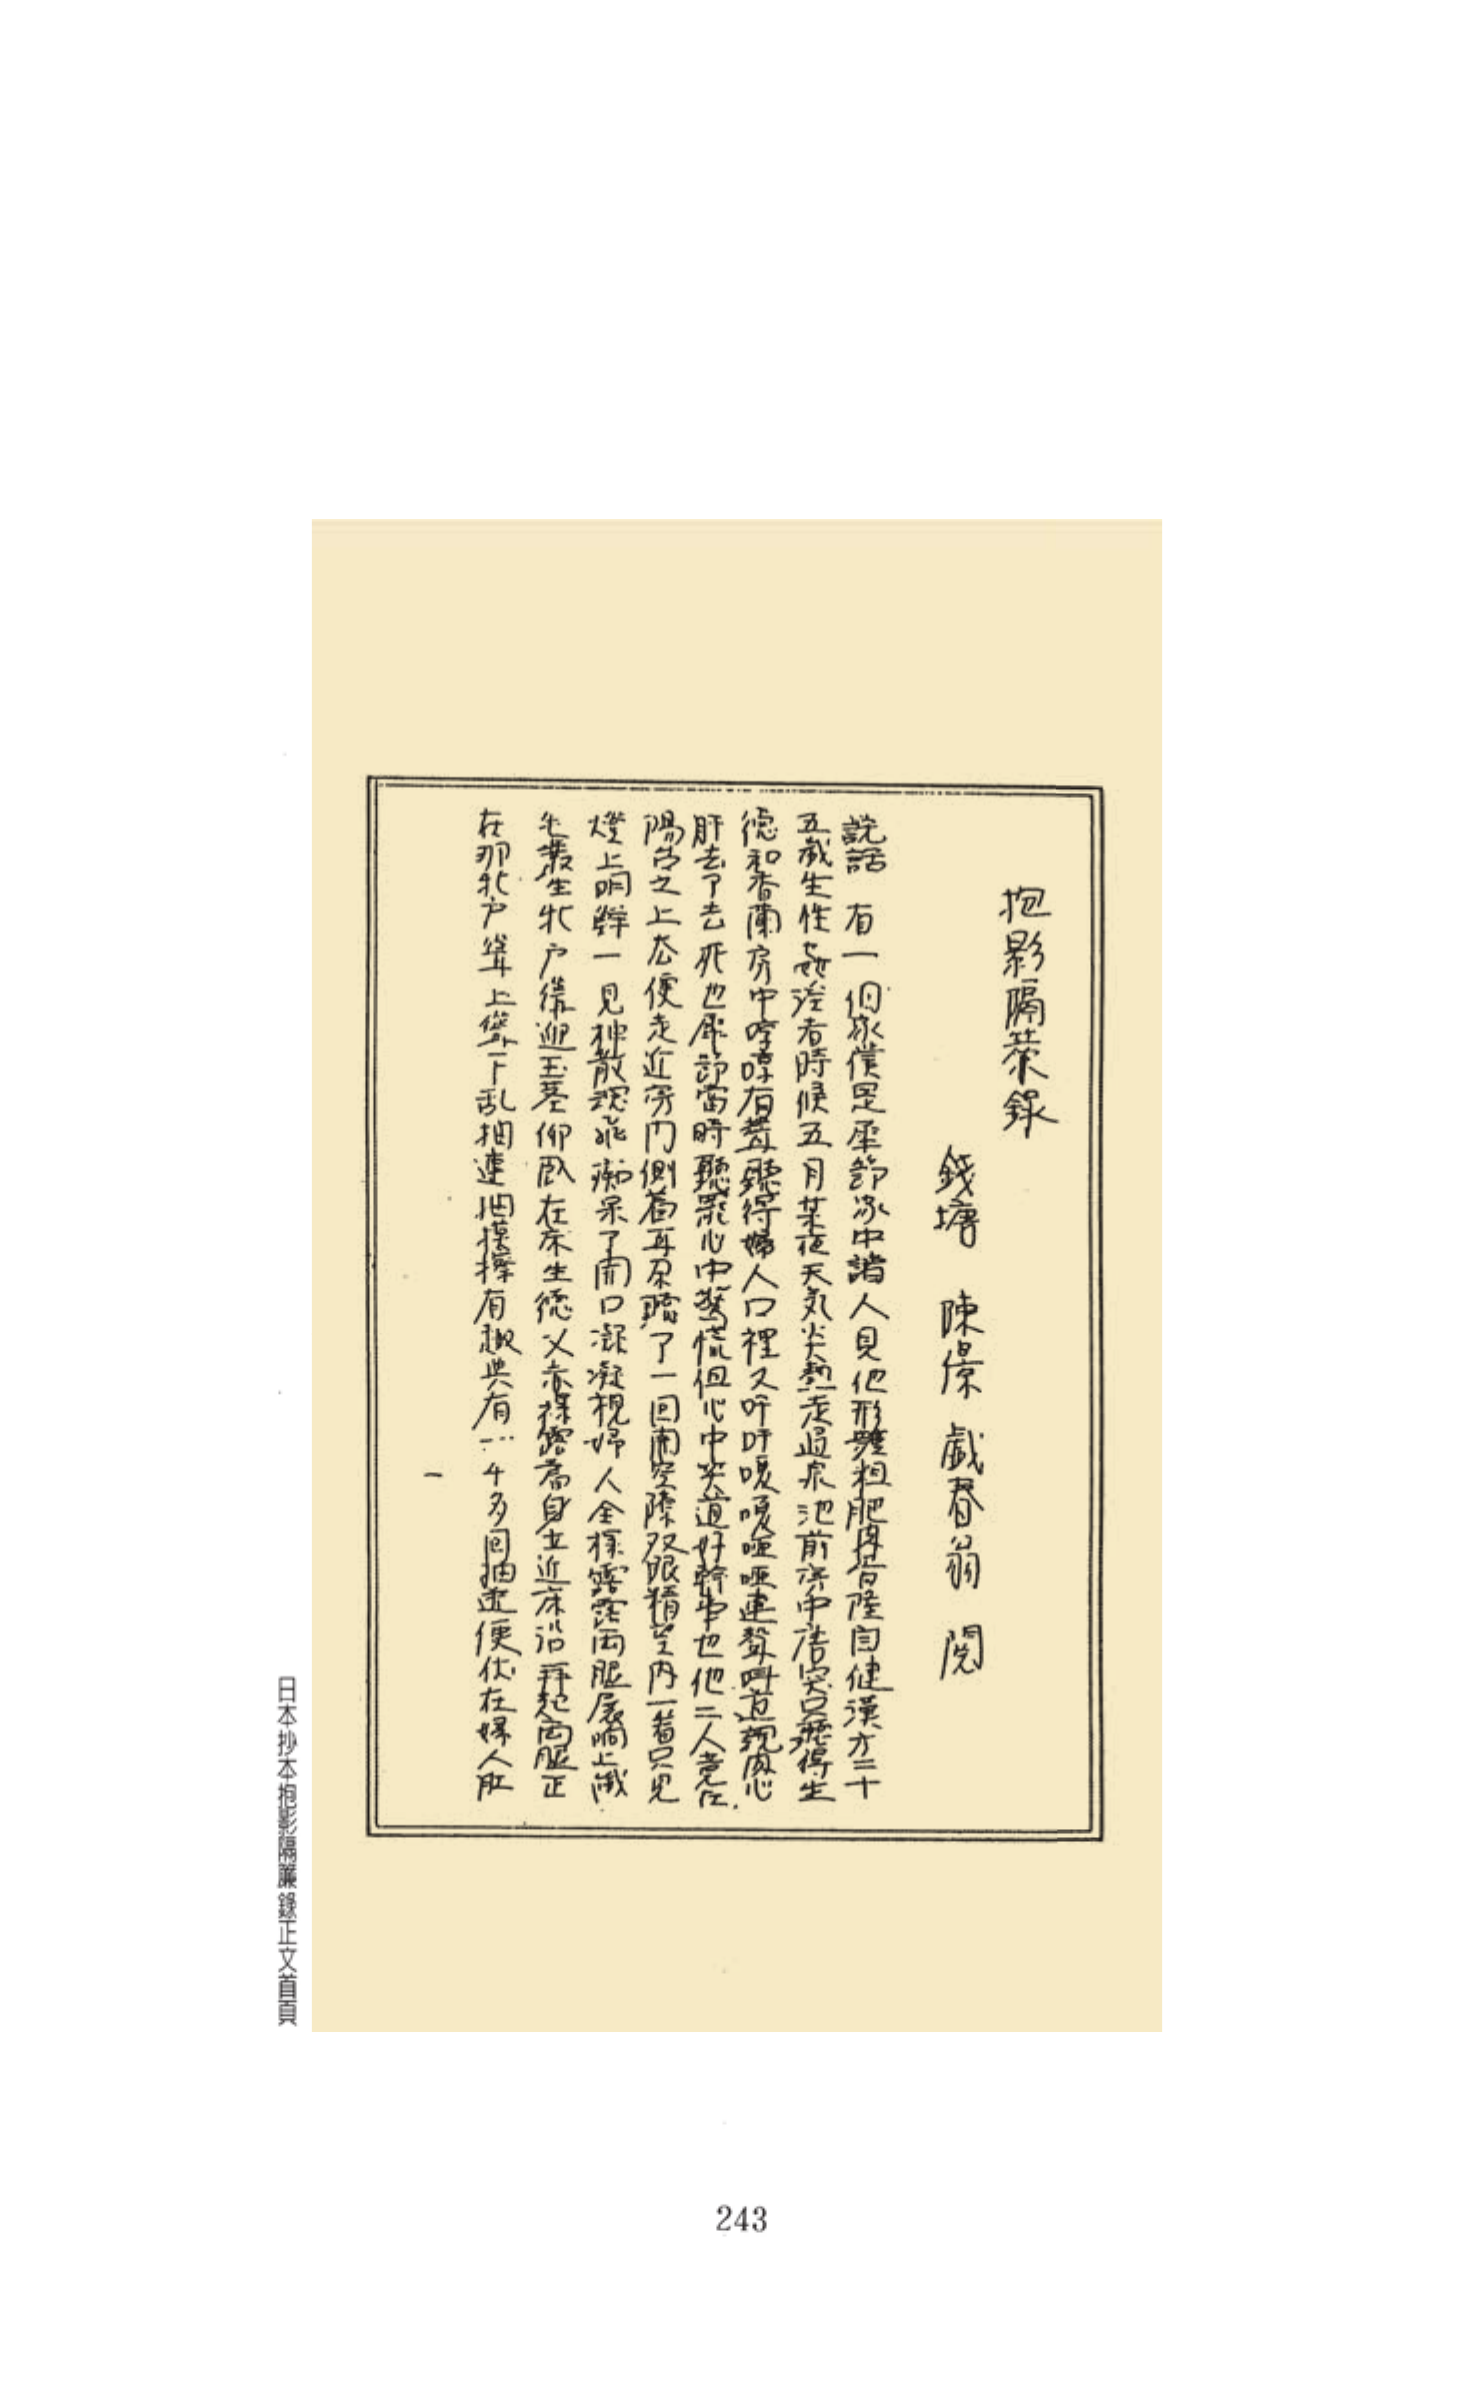 抱影隔簾錄
錢塘 陳璟 戯春翁 閲
説話 有一個家僕是犀節家中諸人見他形體粗肥 隆自健漢方二十
五歳生性姦淫者時候五月某夜天気炎熱走過泉池前房中 突只聽得生
德和香蘭房中哼哼有聲聽得婦人口裡又吁吁嗄嗄哑哑連聲叫道親肉心
肝去了去死也犀節當時聽罷心中驚慌但心中笑道好幹事也他二人竟在
陽台之上
便走近旁門側着耳朶聽了一回
空隙双眼精望内一着只見
燈上明鮮一見神散魂飛痴呆了開口凝凝視婦人全裸露露兩腿展向上
毛叢生牝户 迎玉莖仰臥在床生德又赤裸露着身立近床沿 起兩腿正
在那牝户聳上
下乱抽連抽
擦有趣共有一千多回抽
便伏在婦人肚
一
日本抄本抱影隔簾錄正文首頁
243